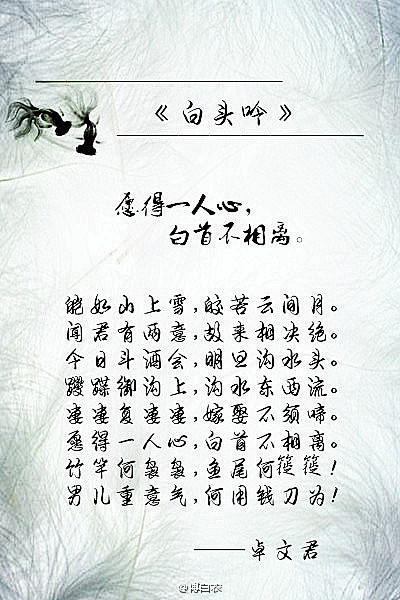 《白头吟》
愿得一人心，
白首不相离。
能如山上雪，皎若云间月。
闻君有两意，故来相决绝。
今日斗酒会，明旦沟水头。
蹀躞御沟上，沟水东西流。
凄凄复凄凄，嫁娶不须啼。
愿得一人心，白首不相离。
竹竿何袅袅，鱼尾何簁簁！
男儿重意气，何用钱刀为！
——卓文君
@博白衣